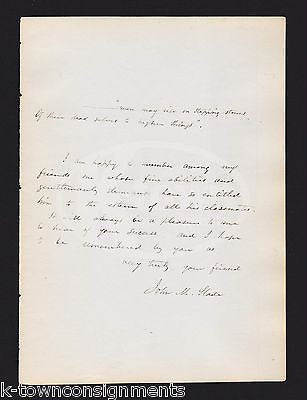 "men may rise on stepping stones
Of their dead selves to higher things".
I am happy to number among my
friends one whose fine abilities and
gentlemanly demeanor have so entitled
him to the esteem of all his classmates.
It will always be a pleasure to me
to hear of your success and I hope
to be remembered by you as
very truly your friend
John M. Slade
k-townconsignments